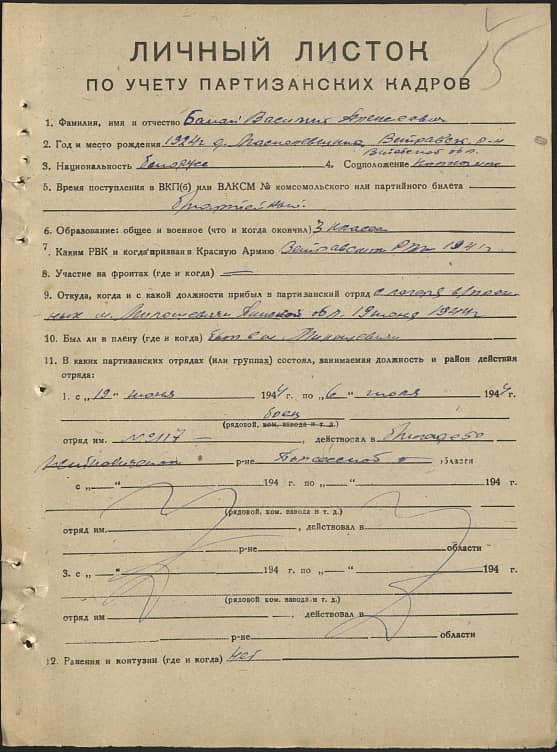 ЛИЧНЫЙ ЛИСТОК
ПО УЧЕТУ ПАРТИЗАНСКИХ КАДРОВ
1. Фамилия, имя и отчество Василий Алексеевич
2. Год и место рождения 1924 г. д.
Витебской обл.
3. Национальность белорус 4. Соцположение колхозник
5. Время поступления в ВКП(б) или ВЛКСМ № комсомольского или партийного билета
6. Образование: общее и военное (что и когда окончил) 3 класса
7. Каким РВК и когда призван в Красную Армию РВК 1941 г
8. Участие на фронтах (где и когда) —
9. Откуда, когда и с какой должности прибыл в партизанский отряд с лагеря
ных м. обл. 19 июня 1944 г
10. Был ли в плену (где и когда) был в м.
11. В каких партизанских отрядах (или группах) состоял, занимаемая должность и район действия
отряда:
1. с „19" июня 1944 г. по „6" июля 1944 г.
боец
(рядовой, ком. взвода и т. д.)
отряд им. № 2117 —, действовал в
р-не области
с „—" 194 г. по „—" 194 г.
(рядовой, ком. взвода и т. д.)
отряд им. , действовал в
р-не области
3. с „—" 194 г. по „—" 194 г.
(рядовой, ком. взвода и т. д.)
отряд им. , действовал в
р-не области
12. Ранения и контузии (где и когда) нет